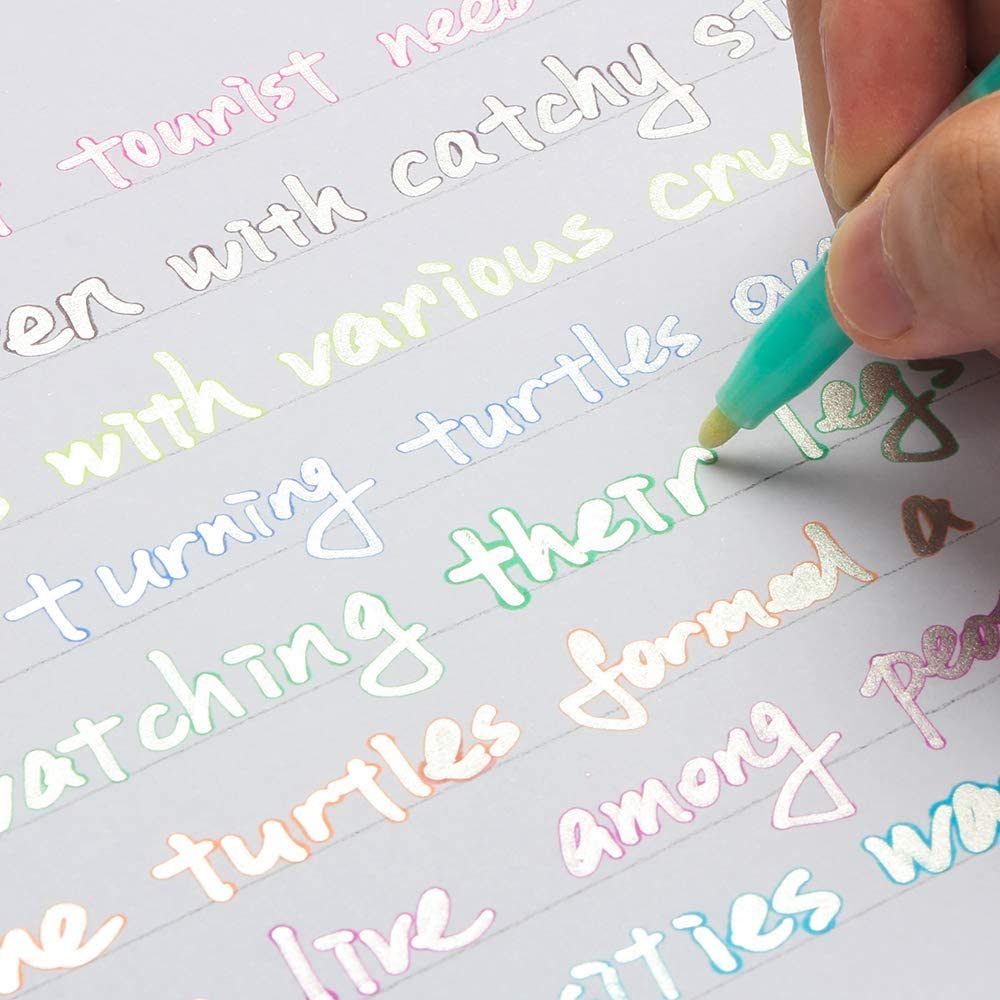 tourist need
en with catchy st
with various cru
turning turtles
watching their legs
turtles formed a
live among pea
ities wa